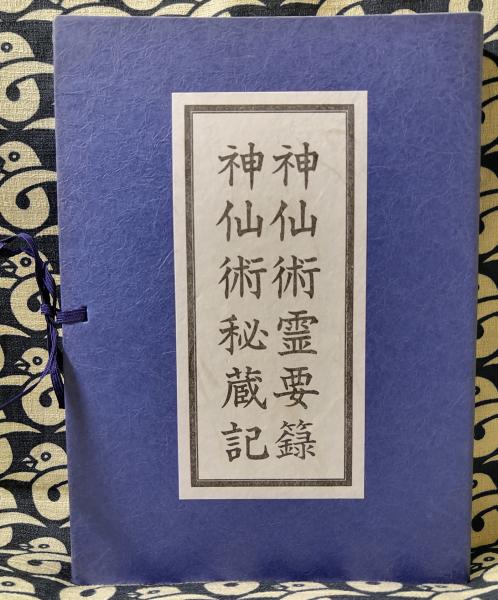 神仙術霊要籙
神仙術秘蔵記